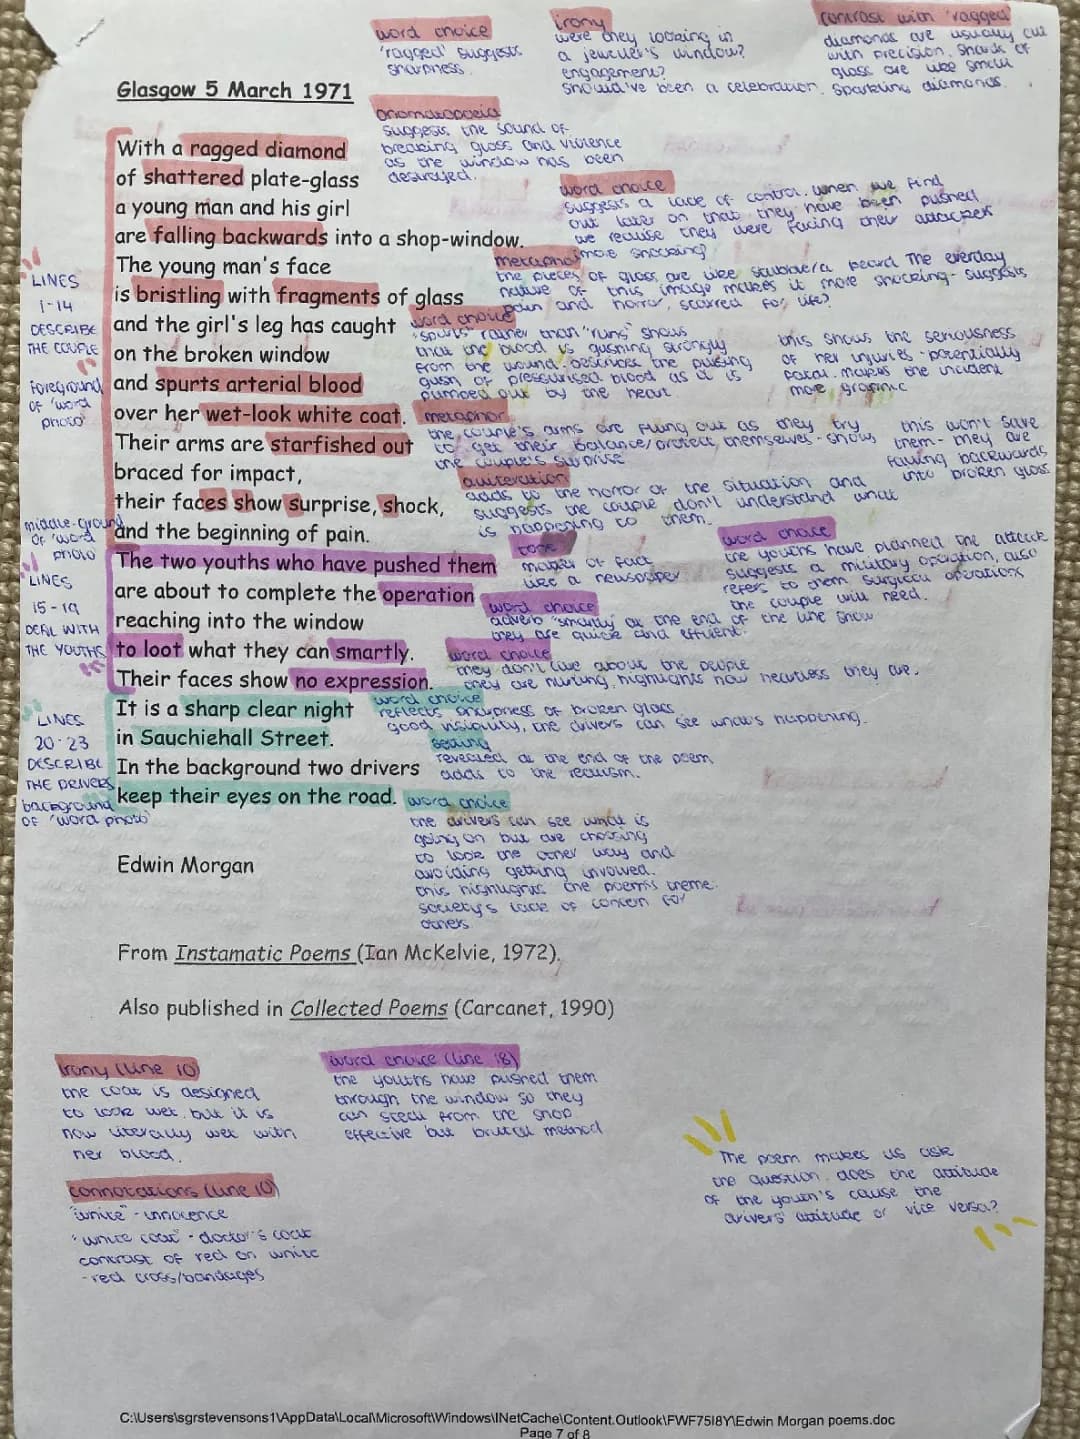 word choice
'ragged' suggests
sharpness.
irony
were they looking in
a jeweller's window?
engagement?
should've been a celebration.
contrast with 'ragged'
diamonds are usually cut
with precision. shards of
glass are like small
sparkling diamonds.
Glasgow 5 March 1971
onomatopoeia
suggests the sound of
breaking glass and violence
as the window has been
destroyed.
With a ragged diamond
of shattered plate-glass
a young man and his girl
are falling backwards into a shop-window.
The young man's face
is bristling with fragments of glass
and the girl's leg has caught
on the broken window
and spurts arterial blood
over her wet-look white coat.
Their arms are starfished out
braced for impact,
their faces show surprise, shock,
and the beginning of pain.
The two youths who have pushed them
are about to complete the operation
reaching into the window
to loot what they can smartly.
Their faces show no expression.
It is a sharp clear night
in Sauchiehall Street.
In the background two drivers
keep their eyes on the road.
word choice
suggests a lack of control. when we find
out later on that they have been pushed
we realise they were facing their attackers
more shocking?
metaphor
the pieces of glass are like stubble/a beard. The everyday
nature of this image makes it more shocking - suggests
pain and horror, scarred for life?
word choice
"spurts" rather than "runs" shows
that the blood is gushing strongly
from the wound. describes the pulsing
gush of pressurised blood as it is
pumped out by the heart.
this shows the seriousness
of her injuries - potentially
fatal. makes the incident
more graphic
metaphor
the couple's arms are flung out as they try
to get their balance/protect themselves - shows
the couple's surprise
this won't save
them - they are
falling backwards
into broken glass
alliteration
adds to the horror of the situation and
suggests the couple don't understand what
is happening to them.
tone
matter of fact
like a newspaper
word choice
the youths have planned the attack
suggests a military operation, also
refers to them surgical operations
the couple will need.
word choice
adverb "smartly" at the end of the line show
they are quick and efficient.
word choice
they don't care about the people
they are hurting. highlights how heartless they are.
word choice
reflects sharpness of broken glass
good visibility, the drivers can see what's happening.
setting
revealed at the end of the poem
adds to the realism.
word choice
the drivers can see what is
going on but are choosing
to look the other way and
avoiding getting involved.
this highlights the poem's theme:
society's lack of concern for
others
LINES
1-14
DESCRIBE
THE COUPLE
foreground
of 'word
photo'
middle-ground
of 'word
photo'
LINES
15-19
DEAL WITH
THE YOUTHS
LINES
20-23
DESCRIBE
THE DRIVERS
background
of 'word photo'
Edwin Morgan
From Instamatic Poems (Ian McKelvie, 1972).
Also published in Collected Poems (Carcanet, 1990)
Irony (line 10)
the coat is designed
to look wet. but it is
now literally wet with
her blood.
connotations (line 10)
"white" - innocence
"white coat" - doctor's coat
contrast of red on white
- red cross/bandages
word choice (line 18)
the youths have pushed them
through the window so they
can steal from the shop.
effective but brutal method
The poem makes us ask
the question, does the attitude
of the youth's cause the
drivers' attitude or vice versa?
C:\Users\sgrstevensons1\AppData\Local\Microsoft\Windows\INetCache\Content.Outlook\FWF75I8Y\Edwin Morgan poems.doc
Page 7 of 8